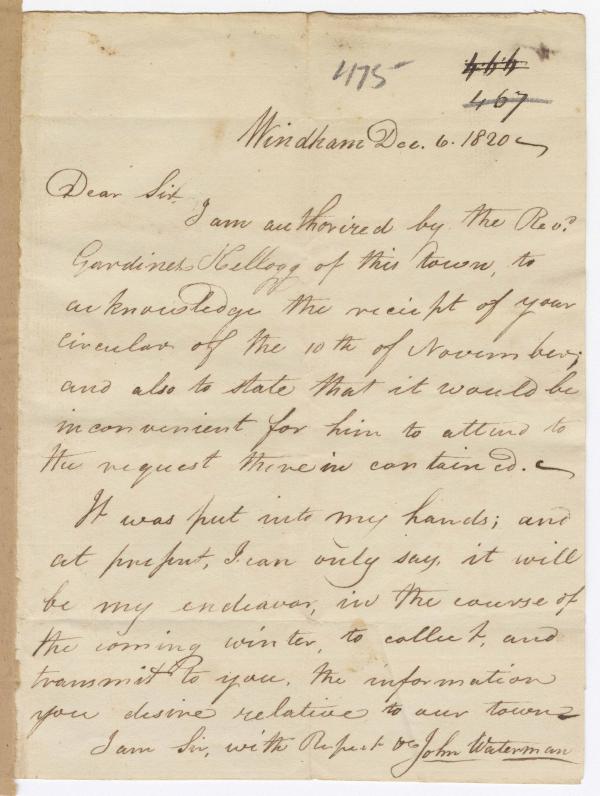 475
444
467
Windham Dec. 6. 1820
Dear Sir,
I am authorized by the Revd.
Gardiner Kellogg of this town, to
acknowledge the reciept of your
circular of the 10th of November;
and also to state that it would be
inconvenient for him to attend to
the request therein contained.
It was put into my hands; and
at present, I can only say, it will
be my endeavor, in the course of
the coming winter, to collect, and
transmit to you, the information
you desire relative to our town
I am Sir, with Respect &c John Waterman